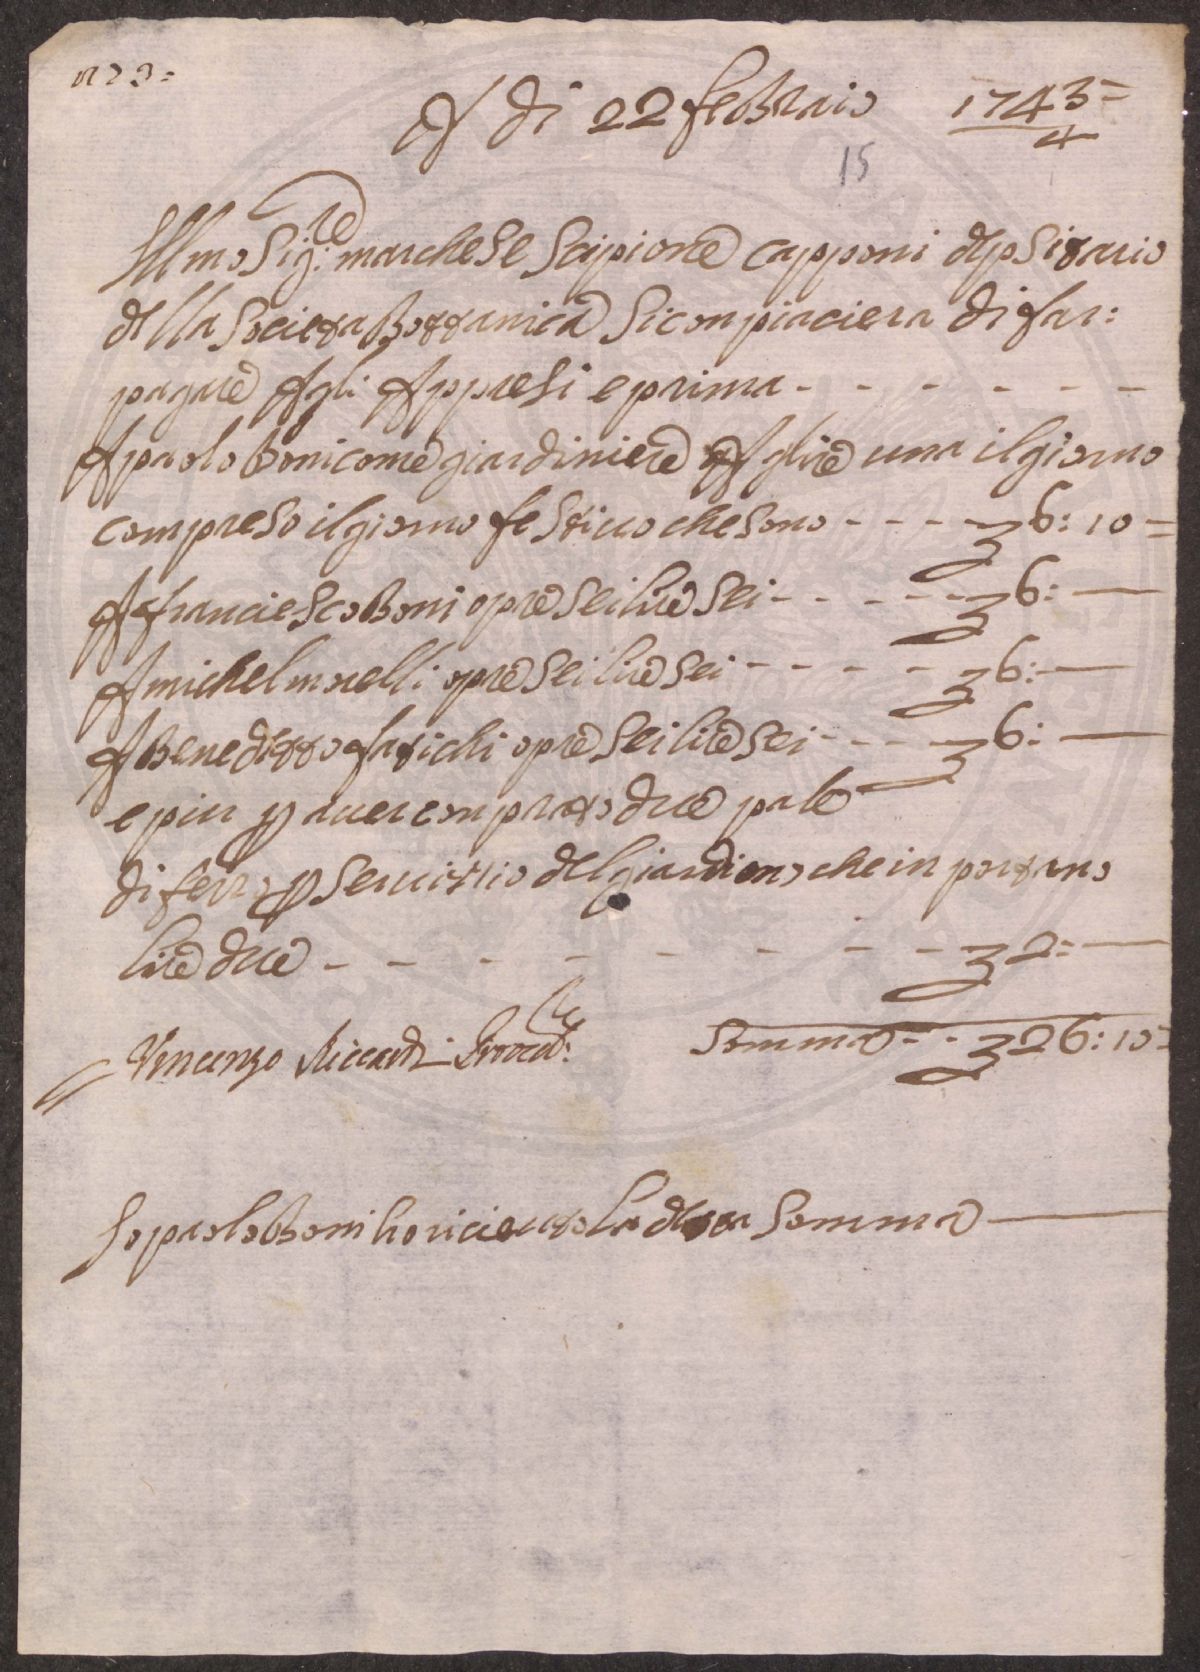 n 23=
A di 22 feBraio 1743=
4
15
Illmo Sig:re marchese Scipione capponi depositario
della Societta Bottanica Si conpiaciera di far:
pagare Agli Appresi e prima - - - - - -
A paolo Boni come giardiniere A lire una il giorno
compreso il giorno festiuo che sono - - - - £ 6: 10 =
A franciesco Boni opre sei lire sei - - - - - £ 6: —
A michel morelli opre sei lire sei - - - - - £ 6: —
A Benedetto fatichi opre sei lire sei - - - - £ 6: —
e piu p auer conprato due pale
di ferro p seruitio del giardino che in portano
lire due - - - - - - - - £ 2: —
Vincenzo Riccardi Provved:re Somma - - £ 26: 10 =
Io paolo Boni ho riceuuto La detta Somma —